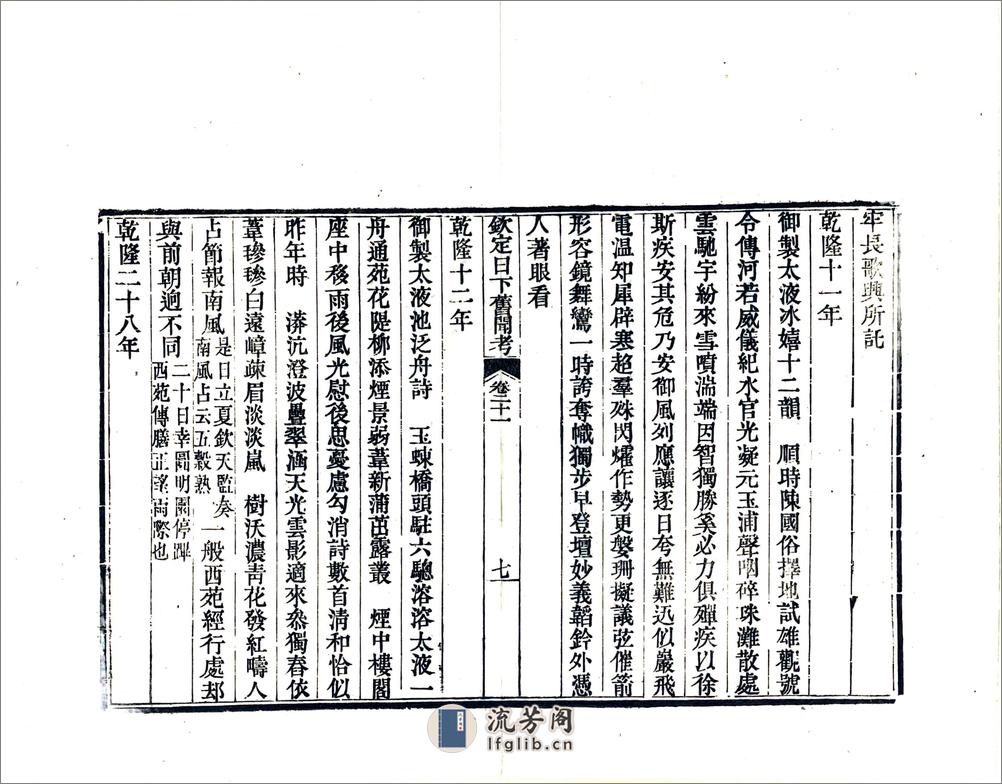 牢長歌興所託
乾隆十一年
御製太液冰嬉十二韻　順時陳國俗擇地試雄觀號
令傳河若威儀紀水官光凝元玉浦聲咽碎珠灘散處
雲馳宇紛來雪噴湍端因智獨勝奚必力俱殫疾以徐
斯疾安其危乃安御風列應讓逐日夸無難迅似巖飛
電温知犀辟寒超羣殊閃爚作勢更媻珊擬議弦催箭
形容鏡舞鸞一時誇奪幟獨步早登壇妙義韜鈐外憑
人著眼看
欽定日下舊聞考　卷二十一　七
乾隆十二年
御製太液池泛舟詩　玉蝀橋頭駐六驄溶溶太液一
舟通苑花隄柳添煙景弱葦新蒲茁露叢　煙中樓閣
座中移雨後風光慰後思憂慮勾消詩數首清和恰似
昨年時　漭沆澄波疊翠涵天光雲影適來叅獨舂依
葦毿毿白遠嶂疎眉淡淡嵐　樹沃濃靑花發紅疇人
占節報南風是日立夏欽天監奏南風占云五穀熟一般西苑經行處却
與前朝逈不同二十日幸圓明園停蹕西苑傳膳正望雨際也
乾隆二十八年
流芳阁
lfglib.cn